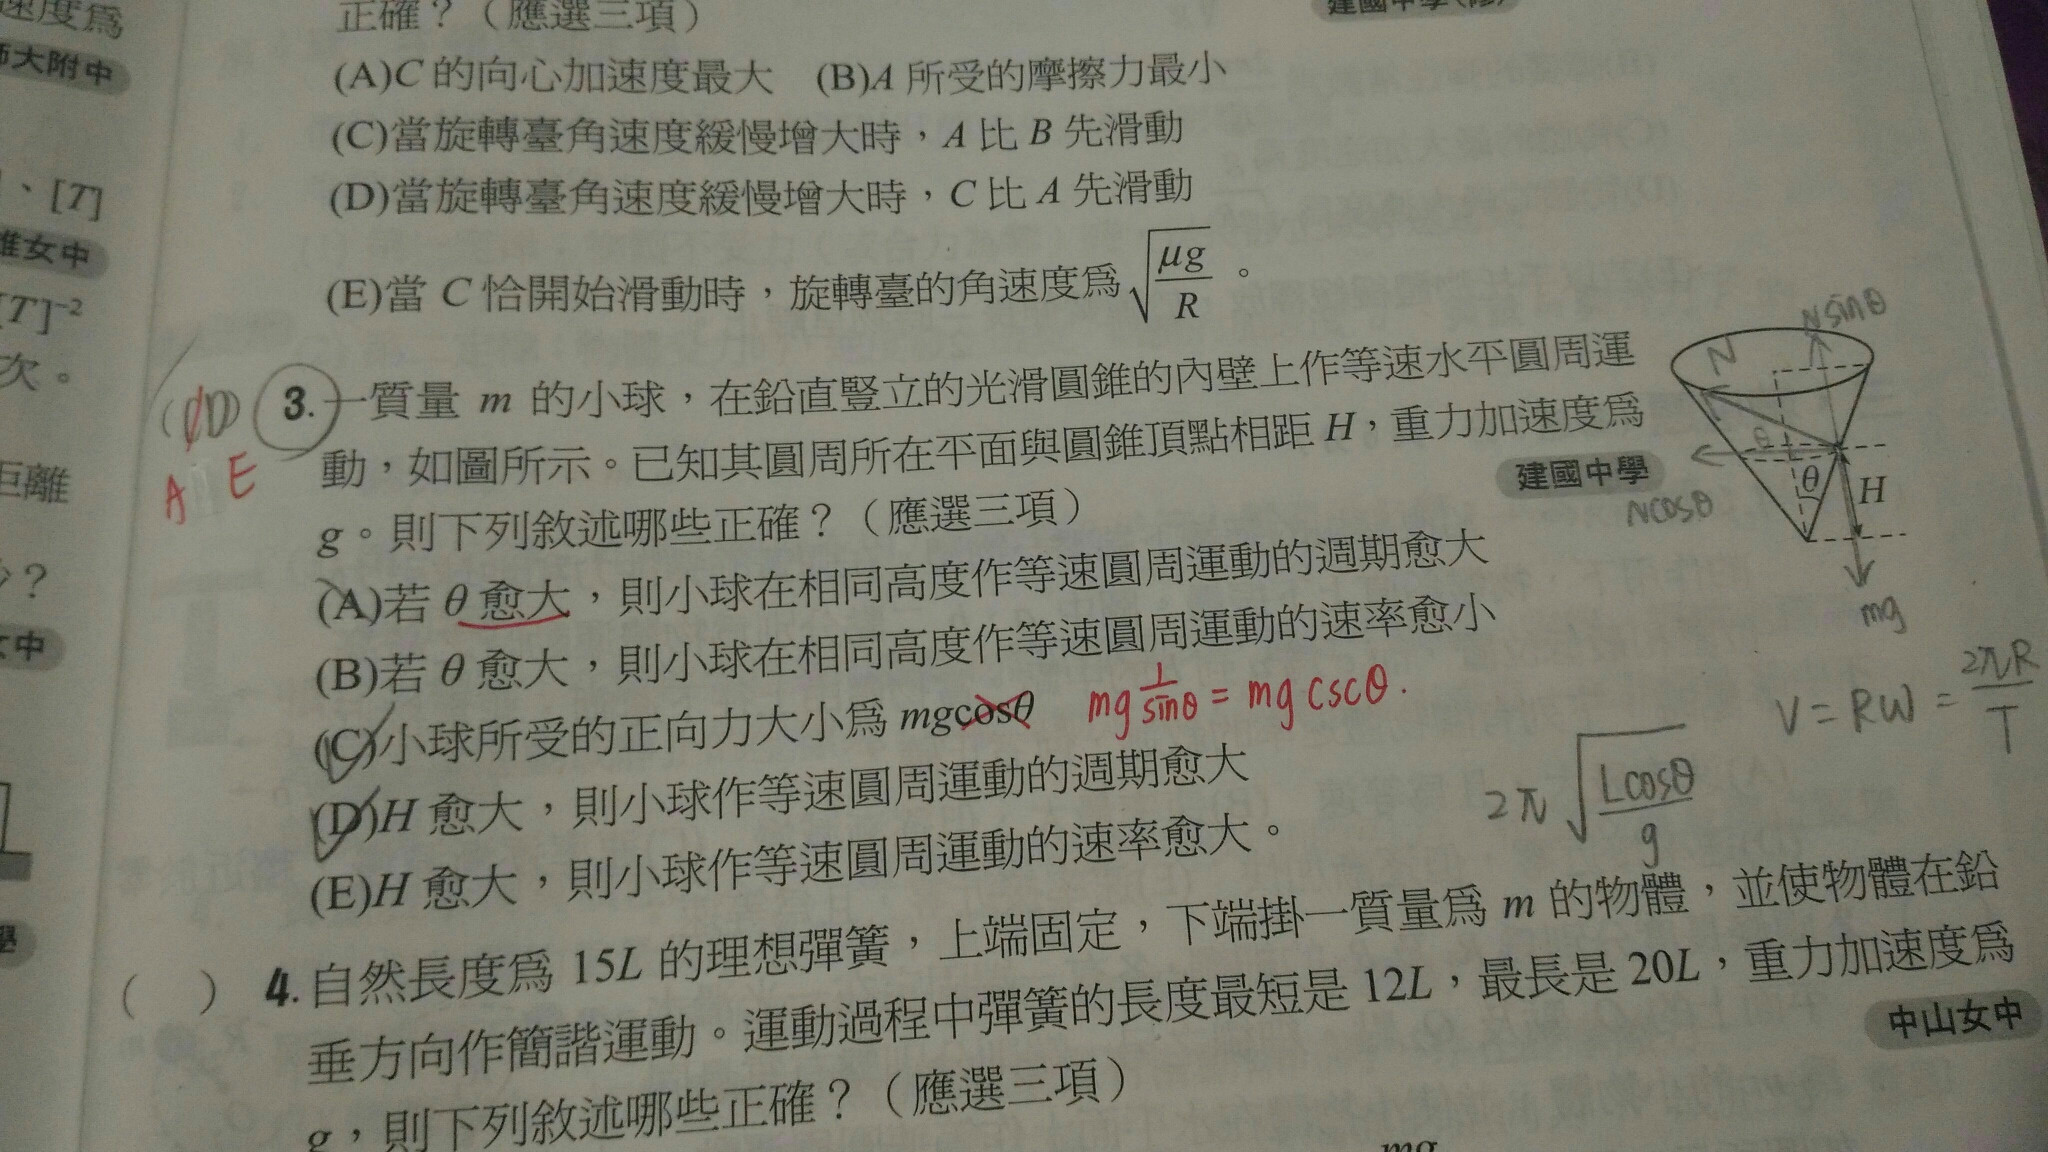 速度為
師大附中
、[T]
雄女中
[T]⁻²
次。
距離
少？
女中
學
正確？（應選三項）
建國中學(修)
(A)C 的向心加速度最大 (B)A 所受的摩擦力最小
(C)當旋轉臺角速度緩慢增大時，A 比 B 先滑動
(D)當旋轉臺角速度緩慢增大時，C 比 A 先滑動
(E)當 C 恰開始滑動時，旋轉臺的角速度為 √(μg/R)。
(CD) 3. 一質量 m 的小球，在鉛直豎立的光滑圓錐的內壁上作等速水平圓周運
A E
動，如圖所示。已知其圓周所在平面與圓錐頂點相距 H，重力加速度為
g。則下列敘述哪些正確？（應選三項） 建國中學
N sinθ
N
θ
N cosθ
θ
H
mg
(A)若 θ 愈大，則小球在相同高度作等速圓周運動的週期愈大
(B)若 θ 愈大，則小球在相同高度作等速圓周運動的速率愈小
(C)小球所受的正向力大小為 mgcosθ mg 1/sinθ = mg cscθ.
(D)H 愈大，則小球作等速圓周運動的週期愈大
(E)H 愈大，則小球作等速圓周運動的速率愈大。
V = RW = 2πR/T
2π √(Lcosθ/g)
( ) 4. 自然長度為 15L 的理想彈簧，上端固定，下端掛一質量為 m 的物體，並使物體在鉛
垂方向作簡諧運動。運動過程中彈簧的長度最短是 12L，最長是 20L，重力加速度為
g，則下列敘述哪些正確？（應選三項） 中山女中
mg